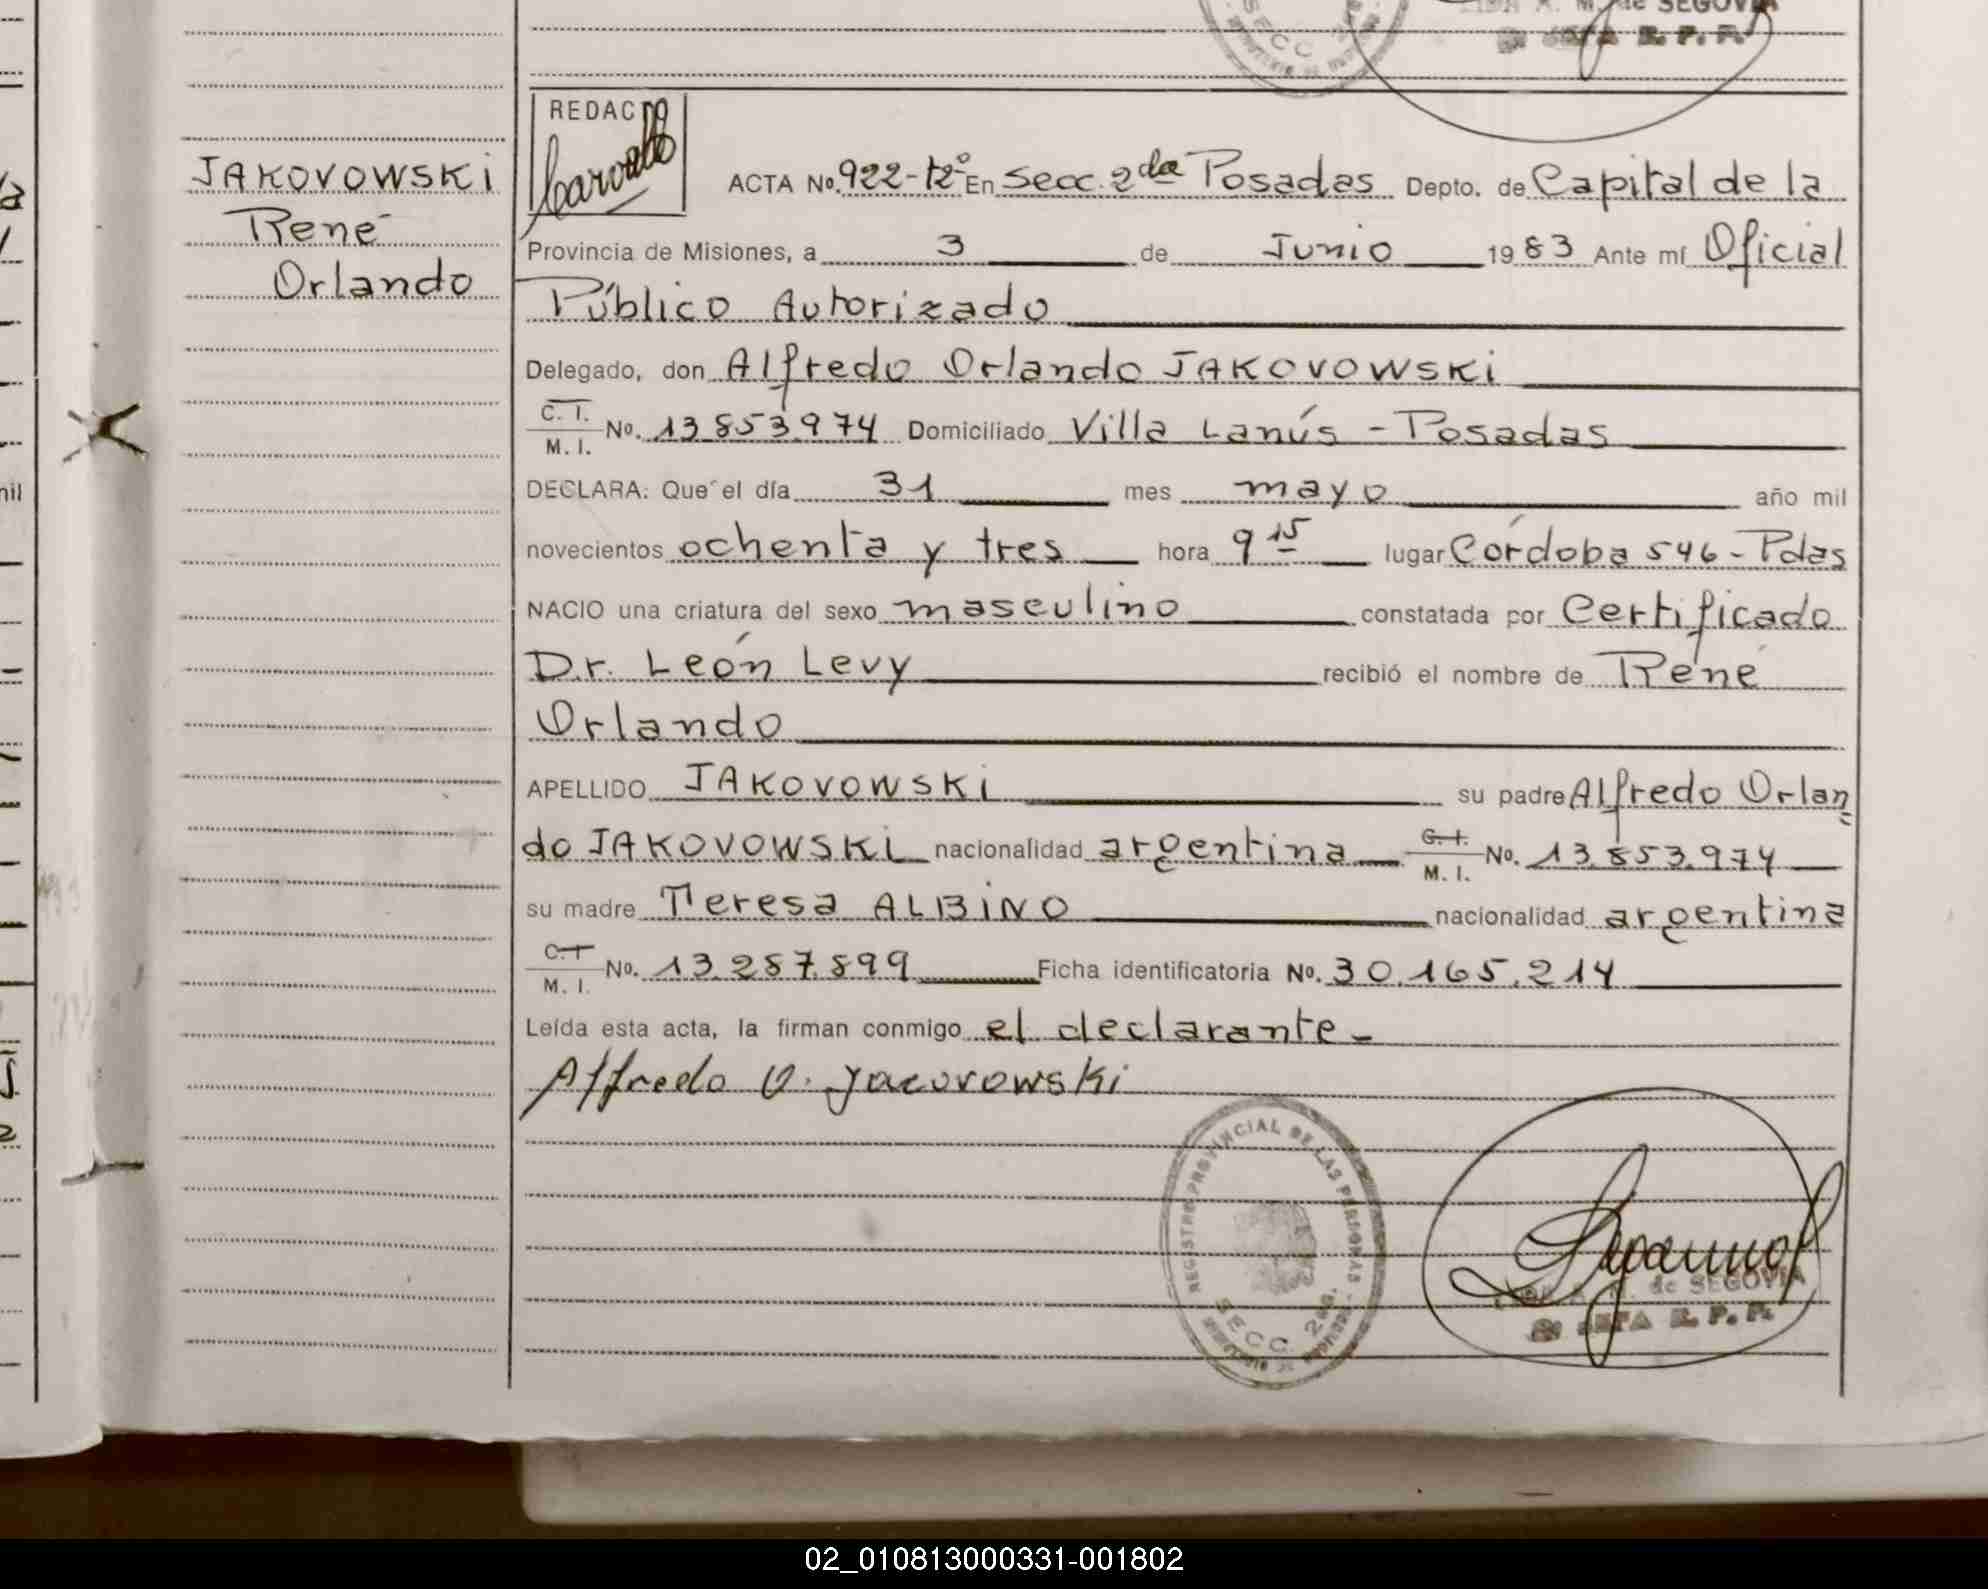 LIDA A. M. de SEGOVIA
JEFA R. P. P.
SECC. 2
JAKOVOWSKI
René
Orlando
REDACTO
ACTA No. 922-tº2º En Secc. 2da Posadas Depto. de Capital de la
Provincia de Misiones, a 3 de Junio 1983 Ante mí Oficial
Público Autorizado
Delegado, don Alfredo Orlando JAKOVOWSKI
C. I.
M. I. No. 13.853.974 Domiciliado Villa Lanús - Posadas
DECLARA: Que el día 31 mes mayo año mil
novecientos ochenta y tres hora 9 15 lugar Córdoba 546 - Pdas
NACIO una criatura del sexo masculino constatada por Certificado
Dr. León Levy recibió el nombre de René
Orlando
APELLIDO JAKOVOWSKI su padre Alfredo Orlan
do JAKOVOWSKI nacionalidad argentina C. I.
M. I. No. 13.853.974
su madre Teresa ALBINO nacionalidad argentina
C. I.
M. I. No. 13.287.899 Ficha identificatoria No. 30.165.214
Leída esta acta, la firman conmigo el declarante -
Alfredo O. Jacovowski
REGISTRO PROVINCIAL DE LAS PERSONAS
SECC. 2da.
de SEGOVIA
JEFA R. P. P.
mil
02_010813000331-001802